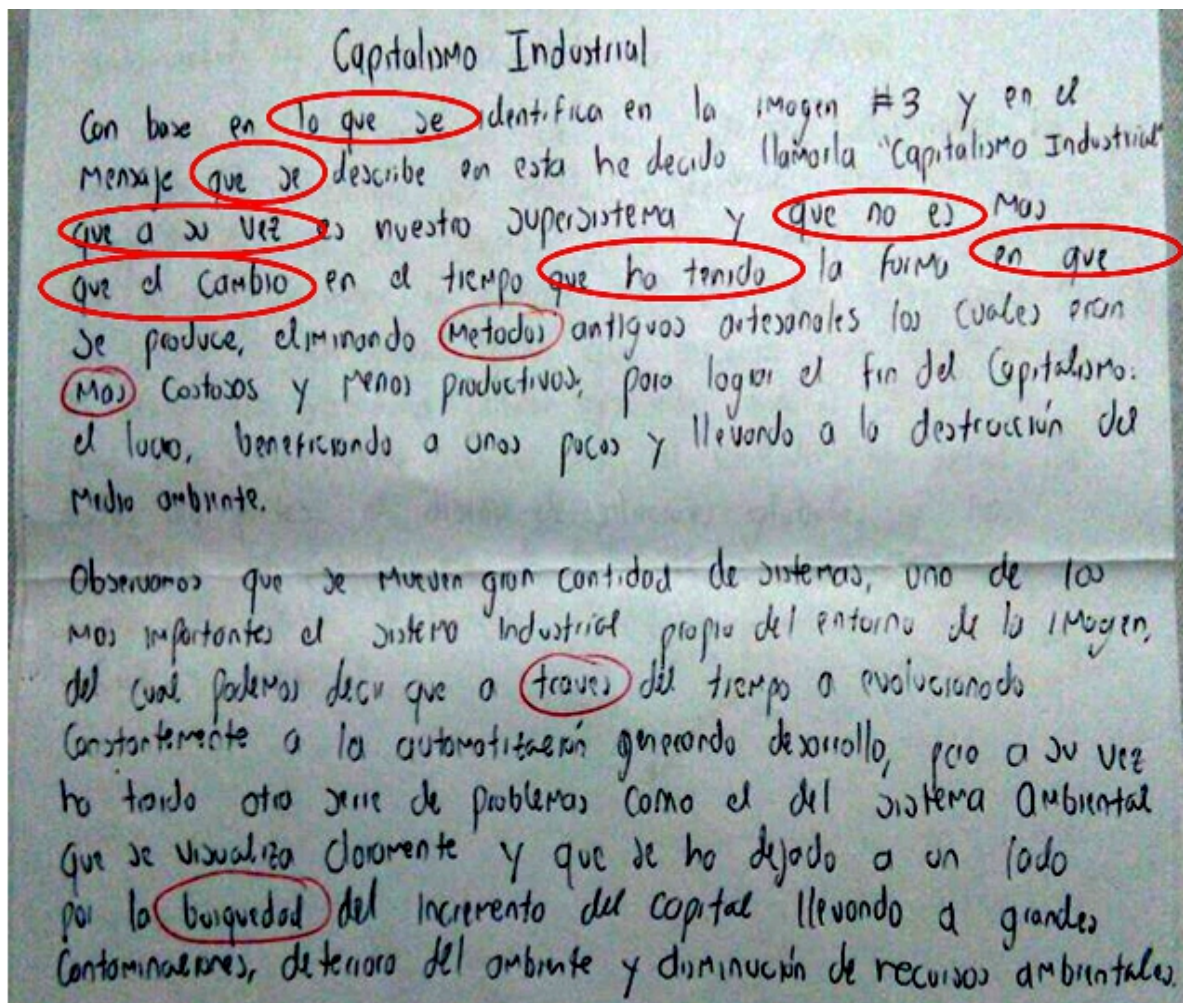 Capitalismo Industrial
Con base en lo que se identifica en la imagen #3 y en el
mensaje que se describe en esta he decido llamarla "Capitalismo Industrial"
que a su vez es nuestro supersistema y que no es mas
que el cambio en el tiempo que ha tenido la forma en que
se produce, eliminando metodos antiguos artesanales los cuales eran
mas costosos y menos productivos, para lograr el fin del Capitalismo:
el lucro, beneficiando a unos pocos y llevando a la destrucción del
medio ambiente.
Observamos que se mueven gran cantidad de sistemas, uno de los
mas importantes el sistema industrial propio del entorno de la imagen,
del cual podemos decir que a traves del tiempo a evolucionado
constantemente a la automatización generando desarrollo, pero a su vez
ha traido otro serie de problemas como el del sistema ambiental
que se visualiza claramente y que se ha dejado a un lado
por la busquedad del incremento del capital llevando a grandes
contaminaciones, deterioro del ambiente y disminución de recursos ambientales.